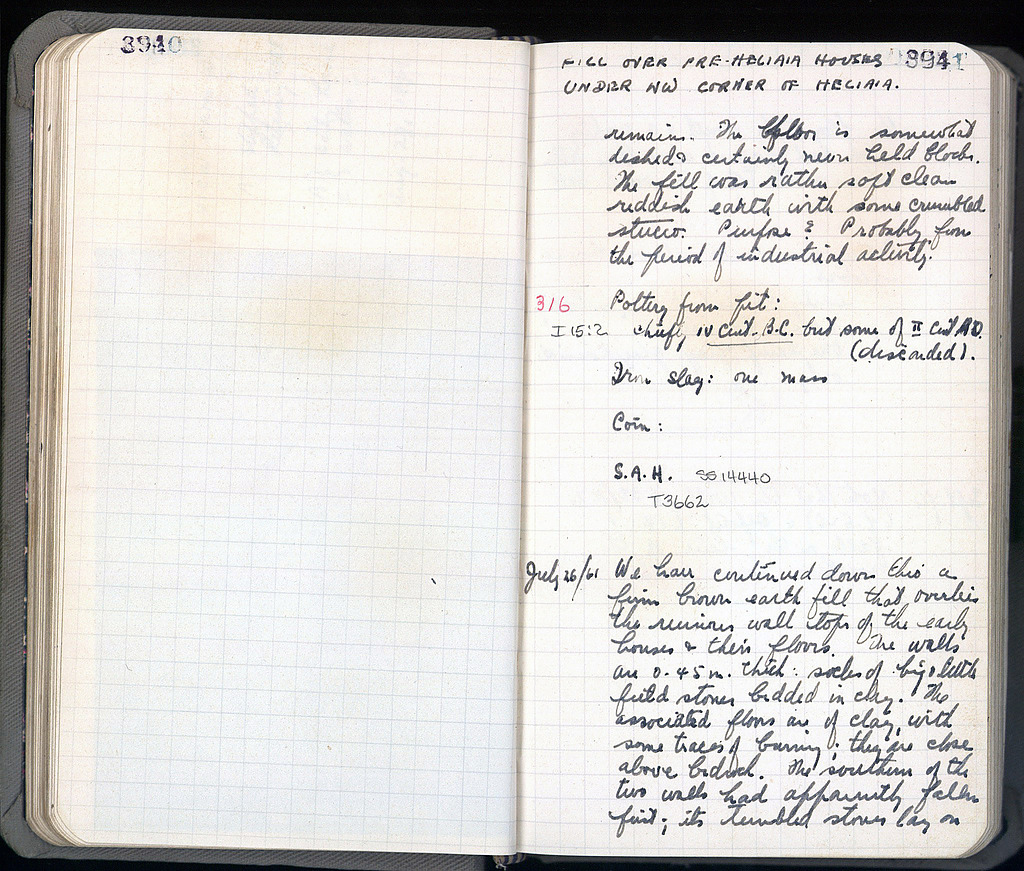 3940
3941
FILL OVER PRE-HELIAIA HOUSES
UNDER NW CORNER OF HELIAIA.
remain. The floor is somewhat
dished & certainly never held blocks.
The fill was rather soft clean
reddish earth with some crumbled
stucco. Purpose? Probably from
the period of industrial activity.
316 Pottery from pit:
I 15:2 chiefly IV Cent. B.C. but some of II Cent A.D.
(discarded).
Iron slag: one mass
Coin:
S.A.H. SS14440
T3662
July 26/61 We have continued down thro a
firm brown earth fill that overlies
the ruinous wall tops of the early
houses & their floors. The walls
are 0.45 m. thick: socles of big & little
field stones bedded in clay. The
associated floors are of clay, with
some traces of burning: they are close
above bedrock. The southern of the
two walls had apparently fallen
first; its tumbled stones lay on